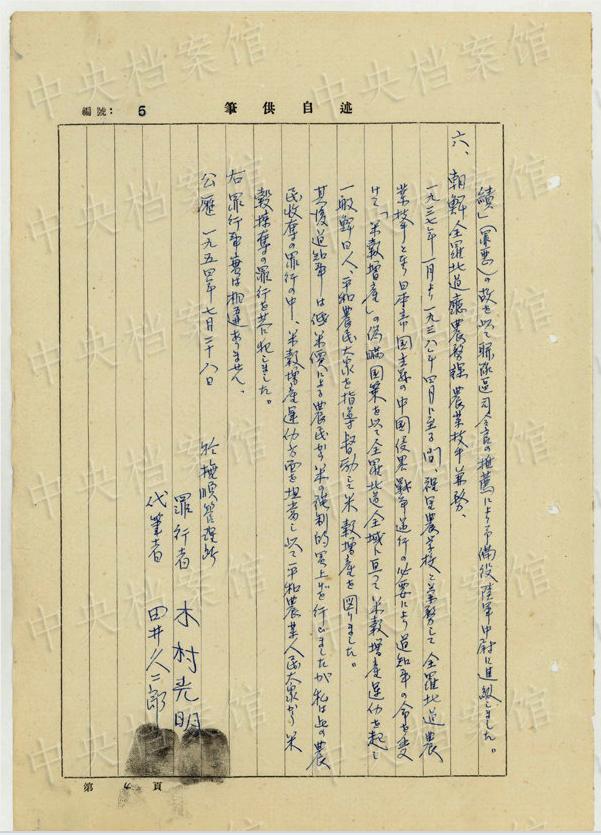 編號: 5
筆供自述
績」(罪悪)の故を以て聯隊区司令官の推薦により予備役陸軍中尉に進級しました。
六、朝鮮全羅北道庁農務課農業技手兼務、
一九三七年一月より一九三八年四月に至る間、裡里農学校と兼務して全羅北道農
業技手となり日本帝国主義の中国侵略戦争遂行の必要により道知事の命を受
けて「米穀増産」の偽瞞国策を以て全羅北道全域に亘って米穀増産運動を起し
一般鮮日人、平和農民大衆を指導督励して米穀増産を図りました。
其後道知事は低米価による農民から米の強制的買上げを行ひましたが私は此の農
民収奪の罪行の中、米穀増産運動を担当し以て平和農業人民大衆から米
穀掠奪の罪行を共に犯しました。
右罪行事実は相違ありません、
公歴一九五四年七月二十八日
於撫順管理所
罪行者 木村光明
代筆者 田井久二郎
第 4 頁
中央档案馆